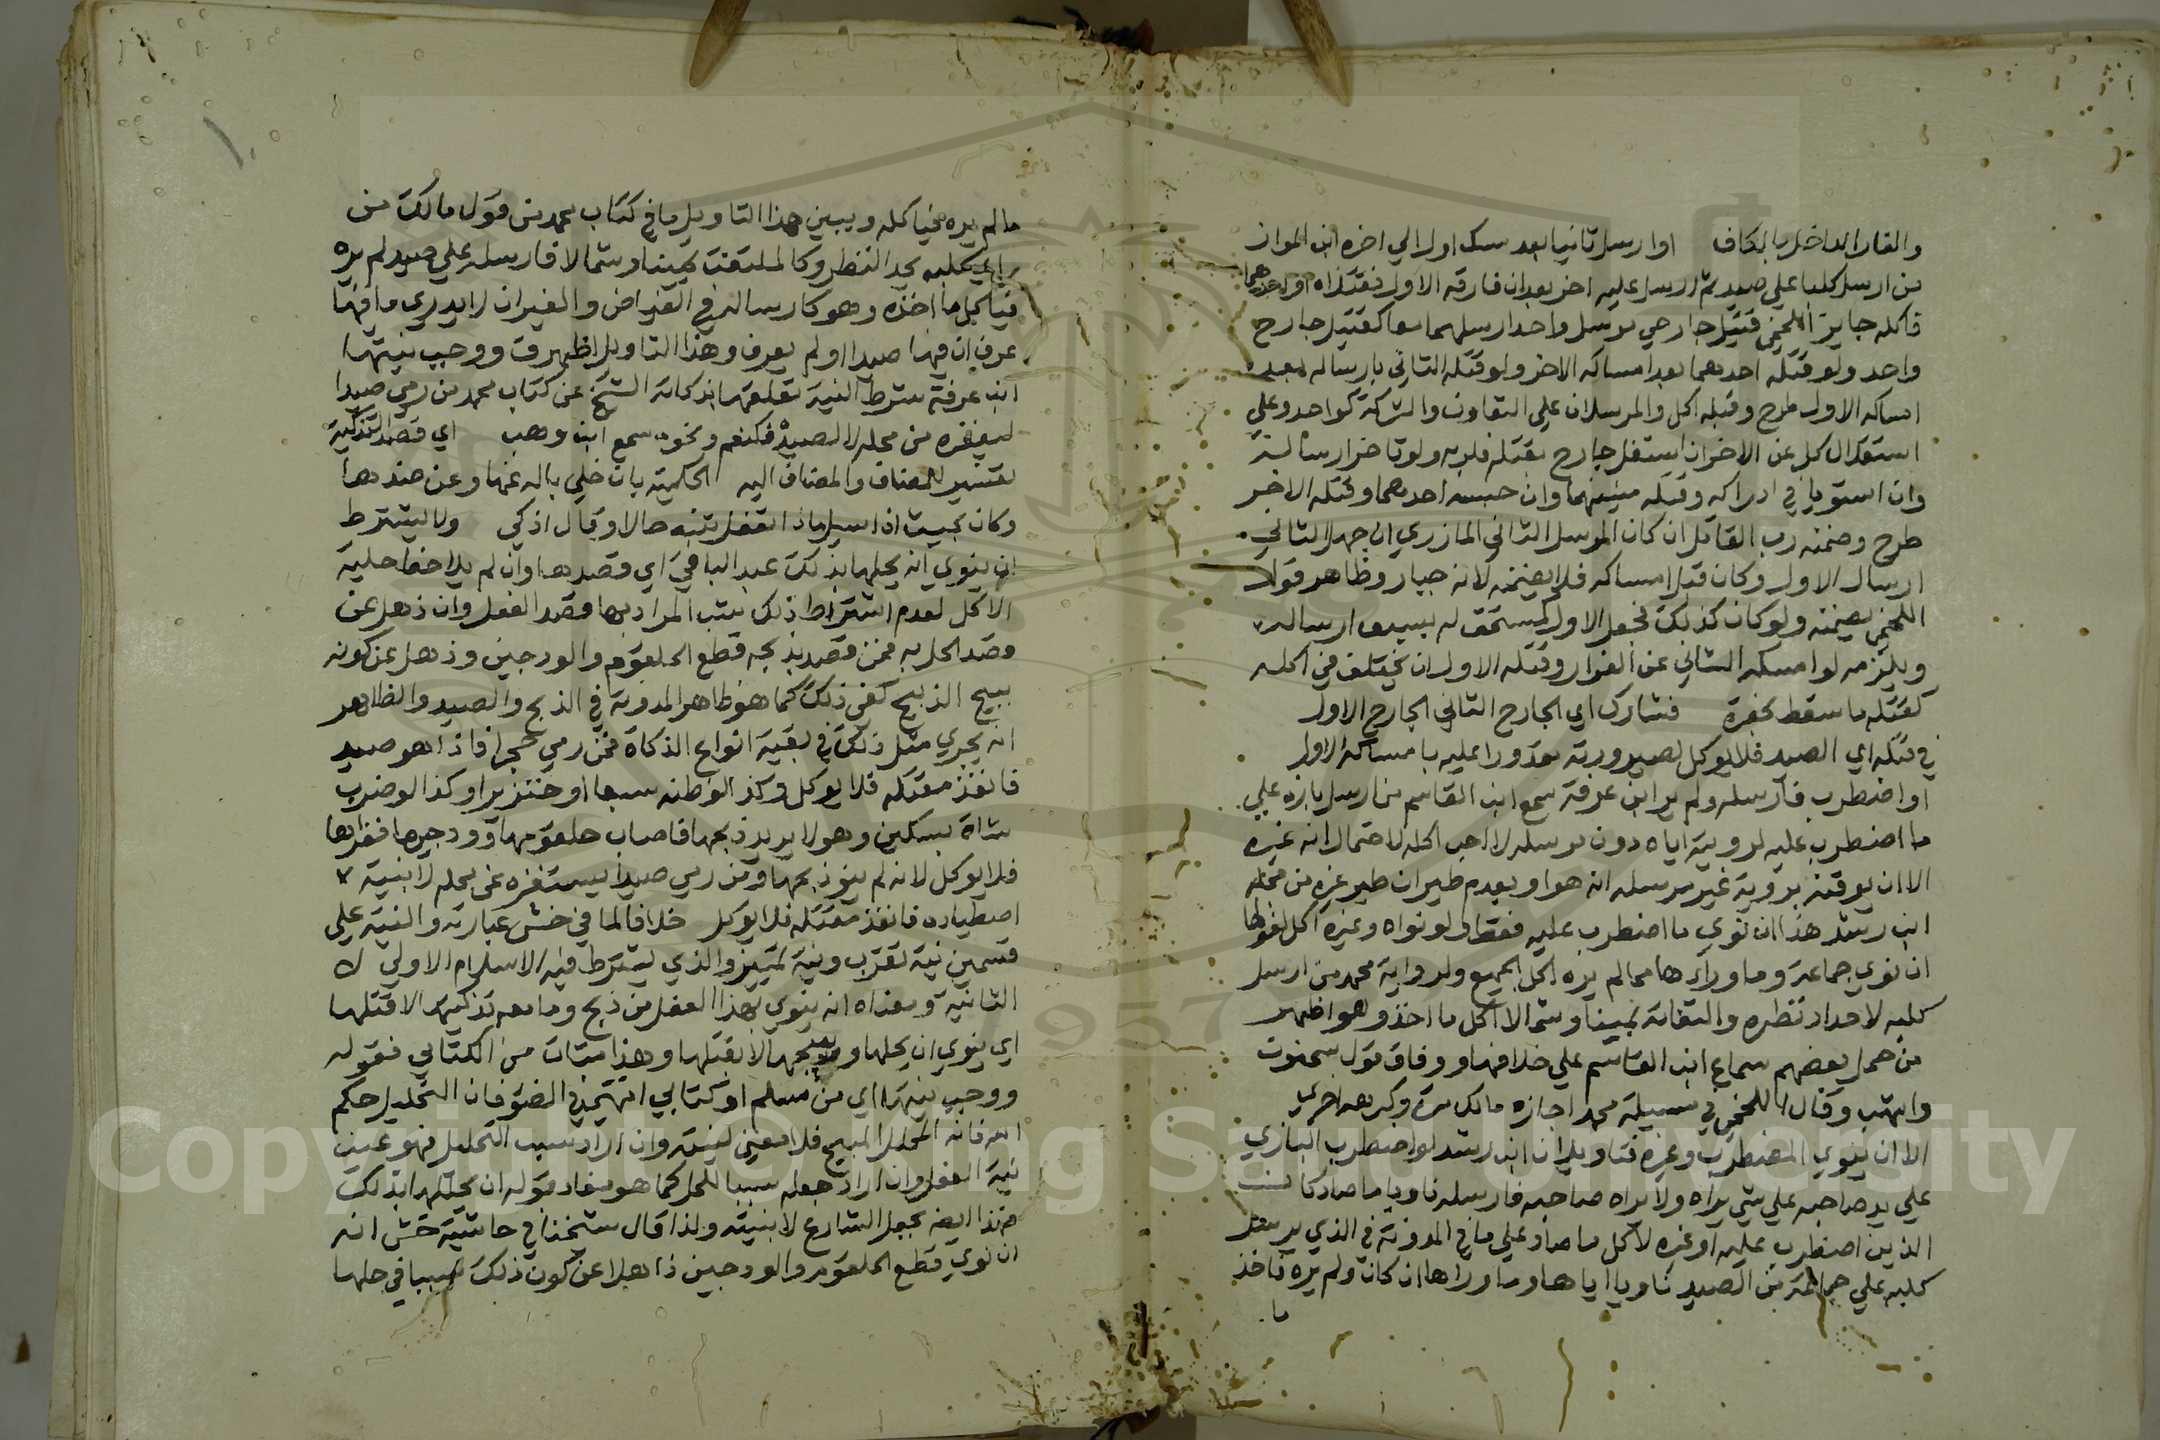 والقار الداخل بالكاف او ارسل ثانيا بعد مسك اول الي اخره ابن المواز
من ارسل كلبا علي صيد ثم ارسل عليه اخر بعد ان فارقه الاول فقتلاه او احدهما
فاكله جايز اللخمي قتيل جارحي مرسل واحد ارسلهما معا كقتيل جارح
واحد ولو قتله احدهما بعد امساكه الاخر ولو قتله الثاني بارساله بعد
امساكه الاول طرح وقبله اكل والمرسلان علي التعاون والشركة كواحد وعلي
استقلال كل عن الاخر ان استقل جارح بقتله فلربه ولو تاخر ارساله
وان استويا في ادراكه وقتله فبينهما وان حبسه احدهما وقتله الاخر
طرح وضمنه رب القاتل ان كان المرسل الثاني المازري ان جهل الثاني
ارسال الاول وكان قبل امساكه فلا يضمنه لانه جبار وظاهر قول
اللخمي يضمنه ولو كان كذلك فجعل الاول كمستحق له بسبق ارساله
ويلزمه لو امسكه الثاني عن الفرار وقتله الاول ان يختلف في اكله
كقتله ما سقط بحفرة فشارك اي الجارح الثاني الجارح الاول
في قتله اي الصيد فلا يوكل لصيرورته مقدورا عليه بامساكه الاول
او اضطرب فارسله ولم ير ابن عرفة سمع ابن القاسم من ارسل بازه علي
ما اضطرب عليه لرويته اياه دون مرسله لا احب اكله لاحتمال انه غيره
الا ان يوقن برؤية غير مرسله انه هو او بعدم طيران طير غيره من محله
ابن رشد هذا ان نوي ما اضطرب عليه فقط ولو نواه وغيره اكل لقولها
ان نوي جماعة وما وراءها مما لم يره اكل الجميع ولرواية محمد من ارسل
كلبه لاحداد نظره والتفاته يمينا وشمالا اكل ما اخذ وهو اظهر
من حمل بعضهم سماع ابن القاسم علي خلافها ووفاق قول سحنون
واشهب وقال اللخمي في مسيلة محمد اجازه مالك مرة وكرهه اخري
الا ان ينوي المضطرب وغيره فتاويلان ابن رشد لو اضطرب البازي
علي يد صاحبه علي شي يراه ولا يراه صاحبه فارسله ناويا ما صاد كائنا
الذي اضطرب عليه او غيره لاكل ما صاد علي ما في المدونة في الذي يرسل
كلبه علي جماعة من الصيد ناويا اياها وما وراها ان كان ولم يره فاخذ
ما
ما لم يره فياكله ويبين هذا التاويل ما في كتاب محمد من قول مالك من
راي كلبه يحد النظر وكالملتفت يمينا وشمالا فارسله علي صيد لم يره
فياكل ما اخذه وهو كارساله في الغياض والغيران لا يدري ما فيها
عرف ان فيها صيدا او لم يعرف وهذا التاويل اظهر ق ووجب نيتها
ابن عرفة شرط النية تعلقها بالذكاة الشيخ عن كتاب محمد من رمي صيدا
لينفره من محله لا لصيده فكنعم ونحوه سمع ابن وهب اي قصد التذكية
تفسير للمضاف والمضاف اليه الحكمية بان خلي باله عنها وعن ضدها
وكان بحيث اذا سيل ماذا تفعل تنبه حالا وقال اذكي ولا يشترط
ان ينوي انه يحلها بذلك عبد الباقي اي قصدها وان لم يلاحظ حلية
الاكل لعدم اشتراط ذلك شب المراد بها قصد الفعل وان ذهل عن
قصد الحل به فمن قصد بذبحه قطع الحلقوم والودجين وذهل عن كونه
يبيح الذبيح كفي ذلك كما هو ظاهر المدونة في الذبح والصيد والظاهر
انه يجري مثل ذلك في بقية انواع الذكاة فمن رمي حجرا فاذا هو صيد
فانفذ مقتله فلا يوكل وكذا لو ظنه سبعا او خنزيرا وكذا لو ضرب
شاة بسكين وهو لا يريد ذبحها فاصاب حلقومها وودجيها ففراها
فلا يوكل لانه لم ينو ذبحها ومن رمي صيدا يستنفره عن محله لا بنية
اصطياده فانفذ مقتله فلا يوكل خلافا لما في خش عبارته والنية علي
قسمين نية تقرب ونية تمييز والذي يشترط فيه الاسلام الاولي لا
الثانية ومعناه ان ينوي بهذا الفعل من ذبح وما معه تذكيتها لا قتلها
اي ينوي ان يحلها ويبيحها لا بقتلها وهذا متات من الكتابي فقوله
ووجب نيتها اي من مسلم او كتابي انتهي في الضوفان التحليل حكم
الله فانه المحلل المبيح فلا معني لنيته وان اراد سبب التحليل فهو عين
نية الفعل وان اراد جعله سببا للحل كما هو مفاد قوله ان يحللها بذلك
فهذا ايضا بجعل الشارع لا بنيته ولذا قال شيخنا في حاشية خش انه
ان نوي قطع الحلقوم والودجين ذاهلا عن كون ذلك سببا في حلها
Copyright © King Saud University
1957